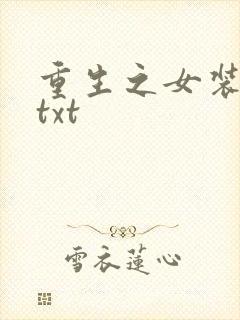 重生之女装
txt
雪衣莲心